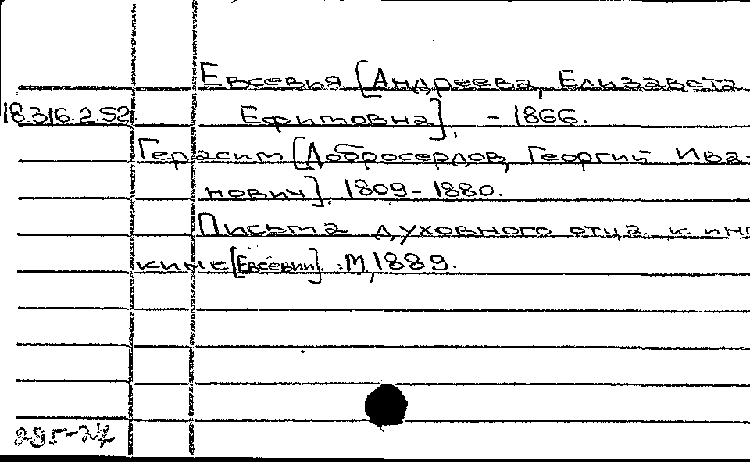 Евсевия [Андреева, Елизавета
18.316.2.52 Ефимовна]. - 1866.
Герасим [Добросердов, Георгий Ива-
нович]. 1809-1880.
Письма духовного отца к ино
кине [Евсевии]. М, 1889.
295-27